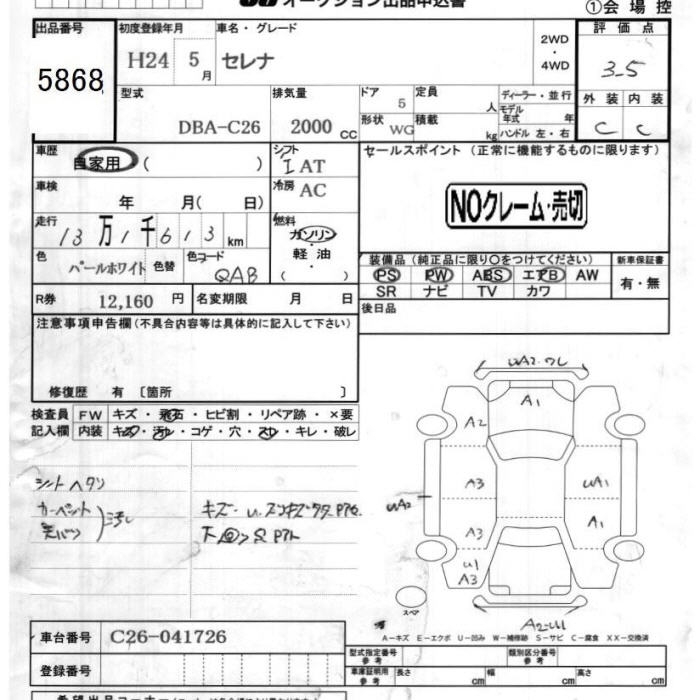 オークション出品申込書
①会場控
出品番号 初度登録年月 車名・グレード 2WD・4WD 評価点
5868 H24 5月 セレナ 3-5
型式 排気量 ドア 定員 ディーラー・並行 外装 内装
DBA-C26 2000 CC 5 人 モデル年式 年 C C
形状 WG 積載 kg ハンドル 左・右
車歴 自家用 ( ) シフト I AT セールスポイント (正常に機能するものに限ります)
車検 年 月( 日) 冷房 AC
NOクレーム・売切
走行 13万1千613km 燃料 ガソリン・軽油 ( )
色 パールホワイト 色替 色コード QAB
装備品 (純正品に限り○をつけてください) 新車保証書
PS PW ABS エアB AW 有・無
SR ナビ TV カワ
R券 12,160 円 名変期限 月 日 後日品
注意事項申告欄(不具合内容等は具体的に記入して下さい)
修復歴 有 〔箇所 〕
検査員記入欄 FW キズ・飛石・ヒビ割・リペア跡・×要
内装 キズ・汚れ・コゲ・穴・スレ・キレ・破レ
シートヘタリ
カーペット
汚レ
キズ・
A1
A2
A3 UA1
UA2
A3 A1
U1
A3
スペア
A−キズ E−エクボ U−凹み W−補修跡 S−サビ C−腐食 XX−交換済
車台番号 C26-041726
登録番号
型式指定番号 参考 類別区分番号 参考
車庫証明用 参考 長さ cm 幅 cm 高さ cm